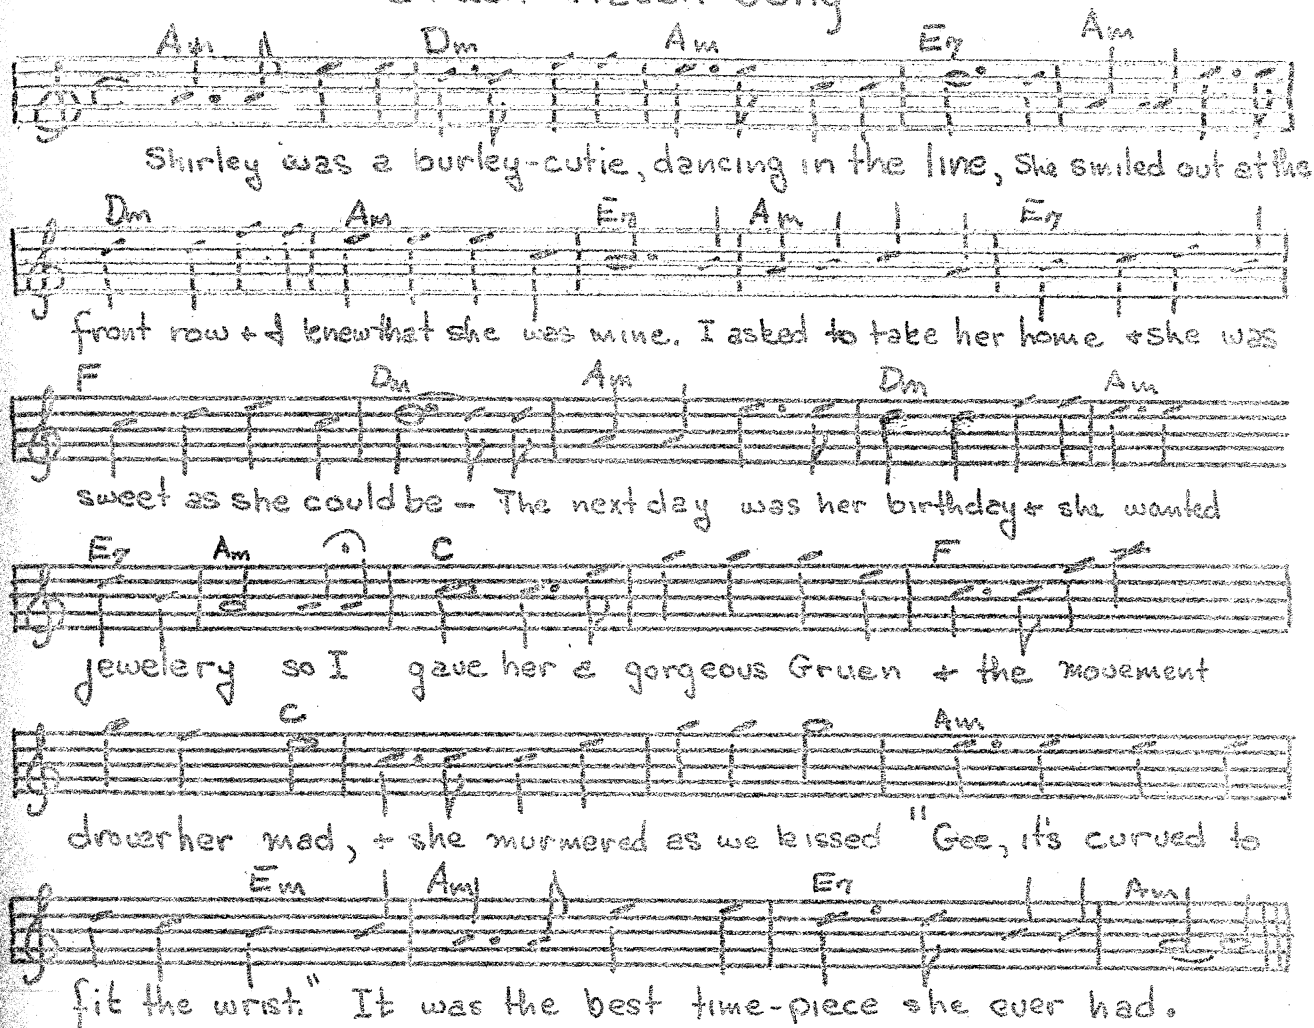 Song
Am Dm Am E7 Am
Shirley was a burley-cutie, dancing in the line, She smiled out at the
Dm Am E7 Am E7
front row + I knew that she was mine. I asked to take her home + she was
F Dm Am Dm Am
sweet as she could be - The next day was her birthday + she wanted
E7 Am C F
jewelery so I gave her a gorgeous Gruen + the movement
C Am
drove her mad, + she murmered as we kissed "Gee, it's curved to
Em Am E7 Am
fit the wrist." It was the best time-piece she ever had.